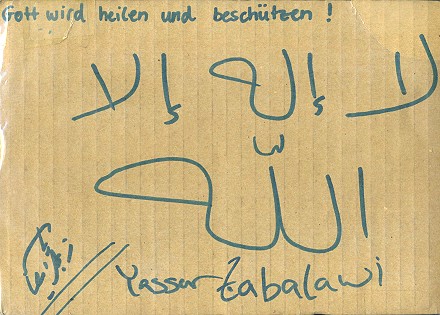 Gott wird heilen und beschützen !
لا إله إلا
اللّه
Yasser Zabalawi